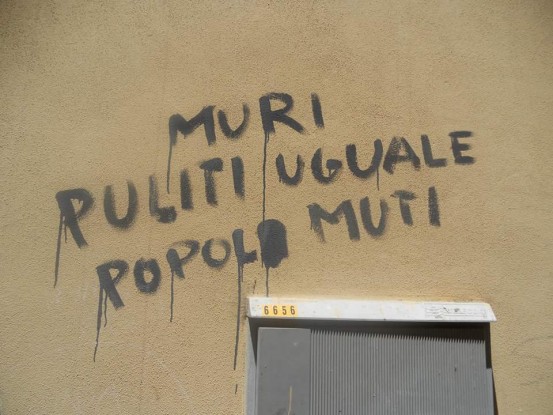 MURI
PULITI UGUALE
POPOLO MUTI
6656